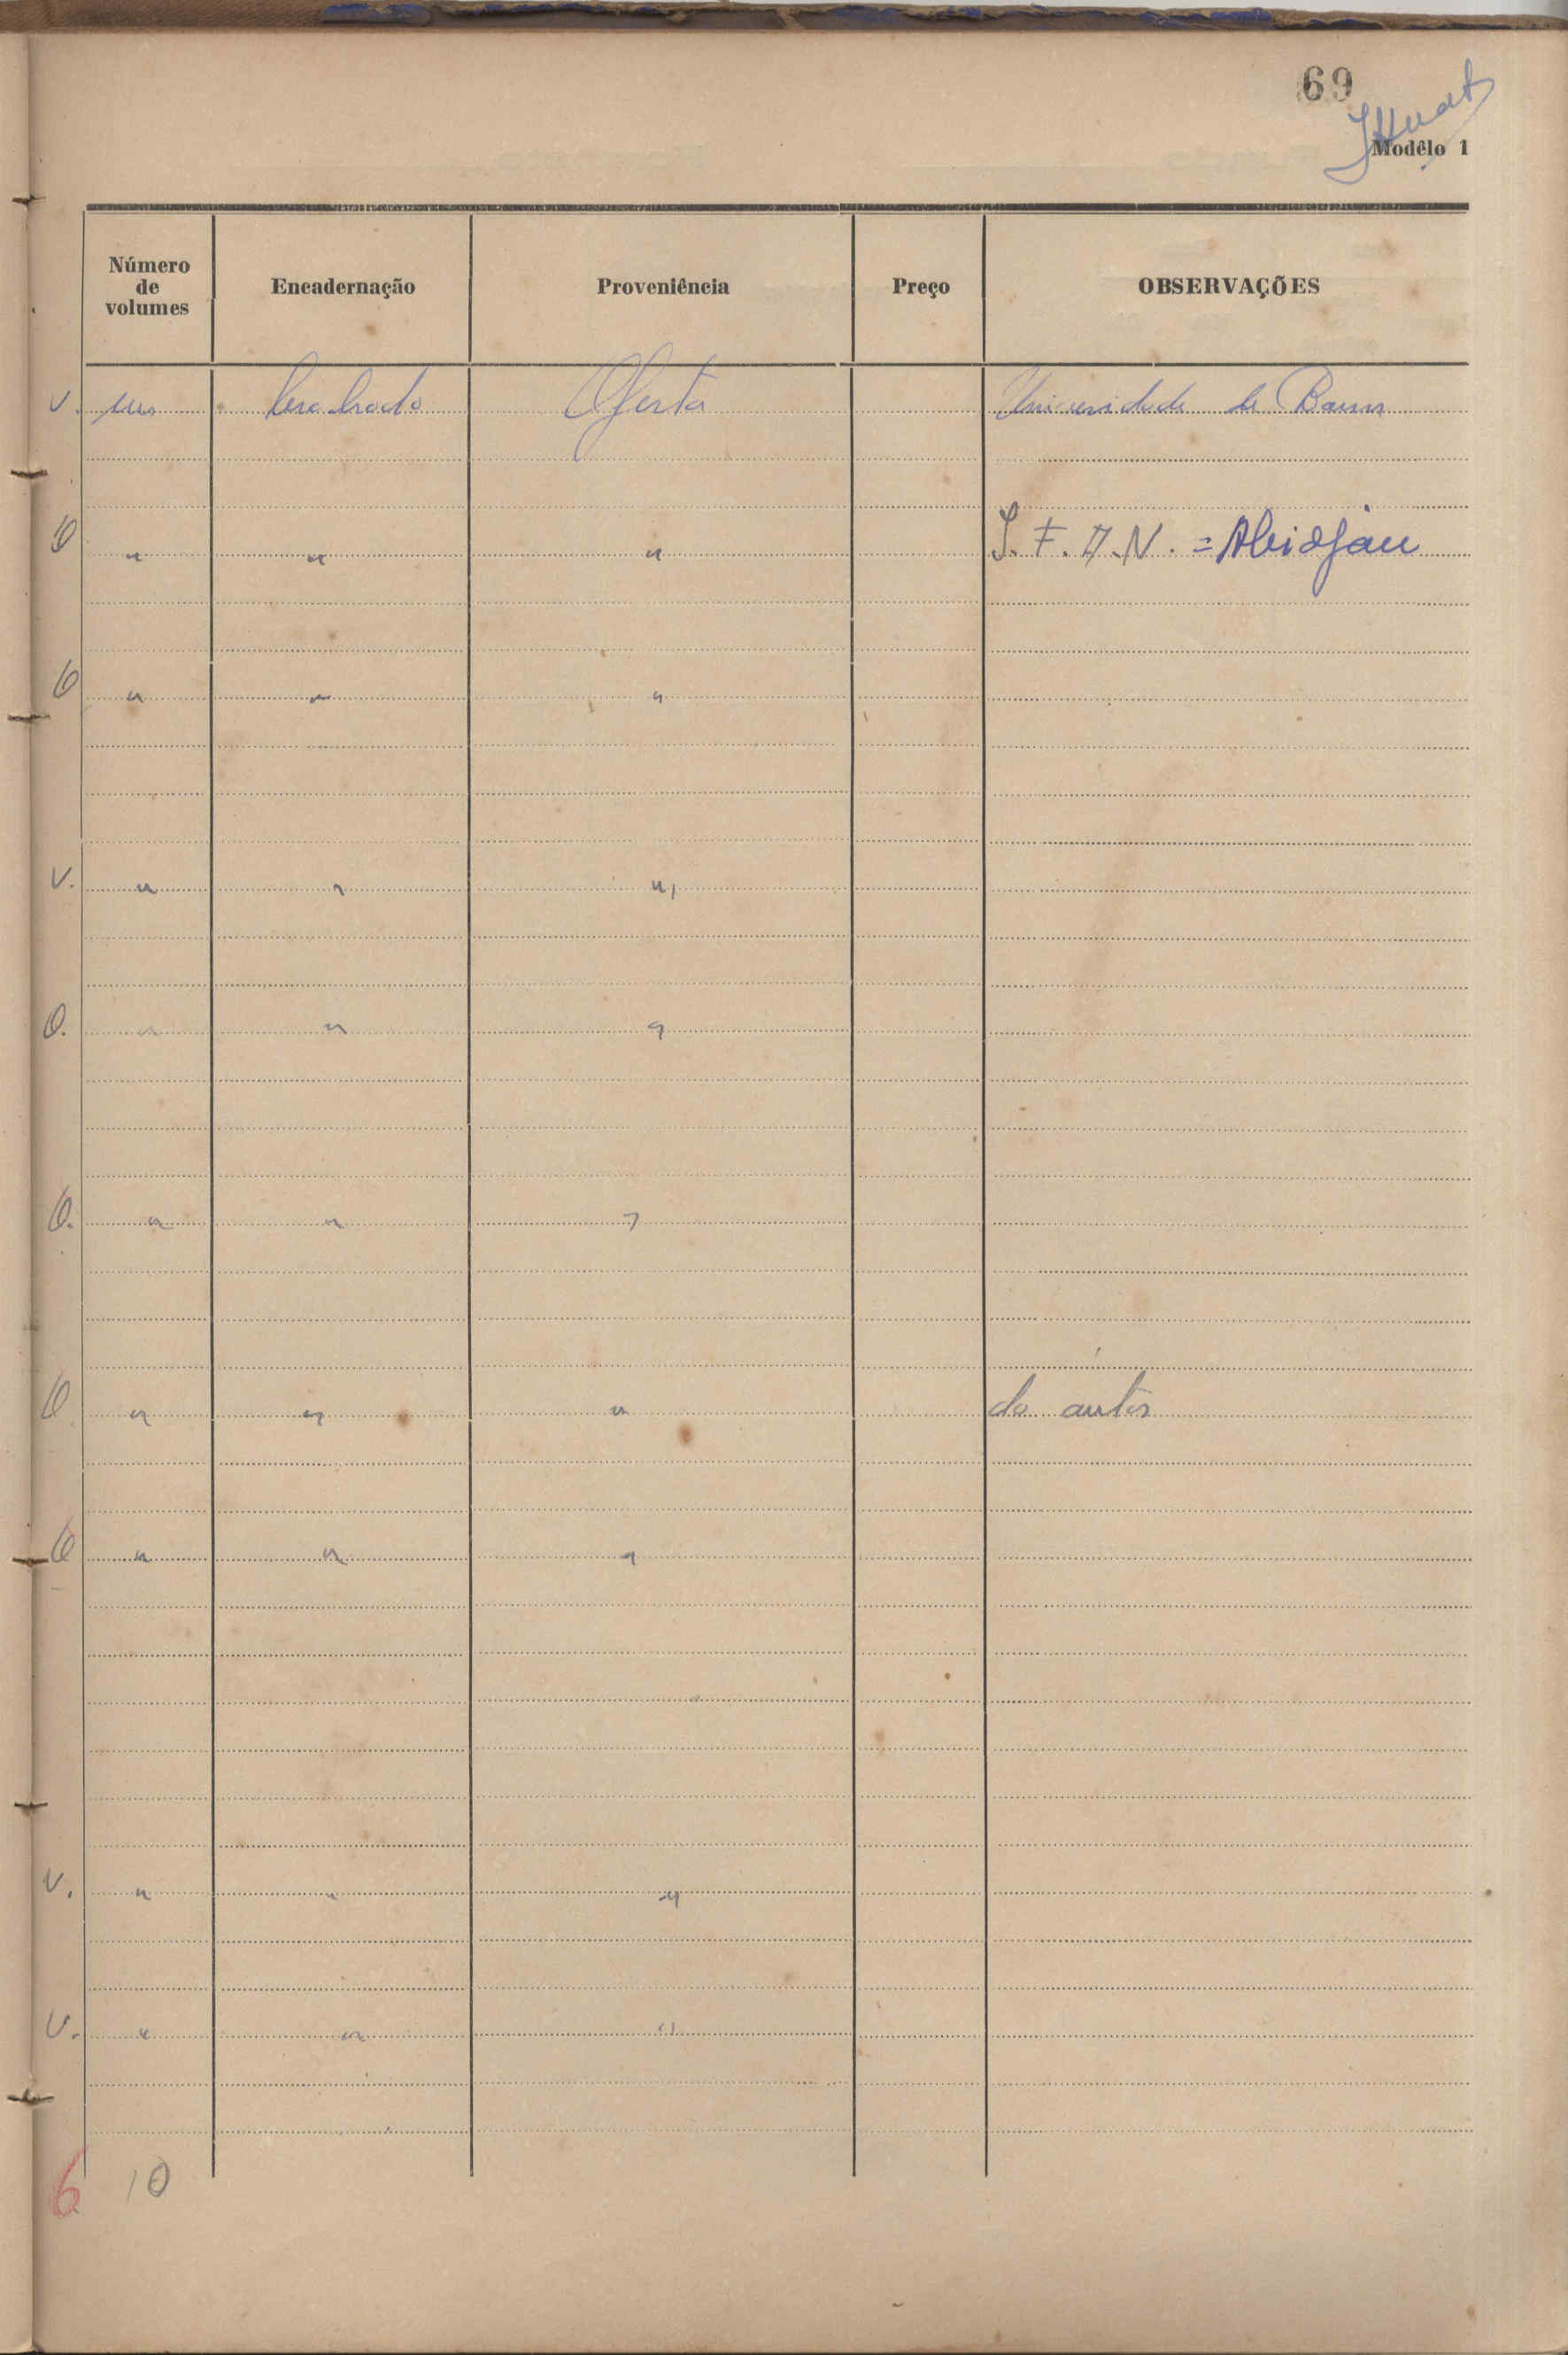 69
Modêlo 1
Número de volumes Encadernação Proveniência Preço OBSERVAÇÕES
V. um Oferta Universidade de
O " " " I.F.A.N. = Abidjan
O " " "
V. " " "
O. " " "
O. " " "
O " " " do autor
O " " "
V. " " "
V. " " "
6 10